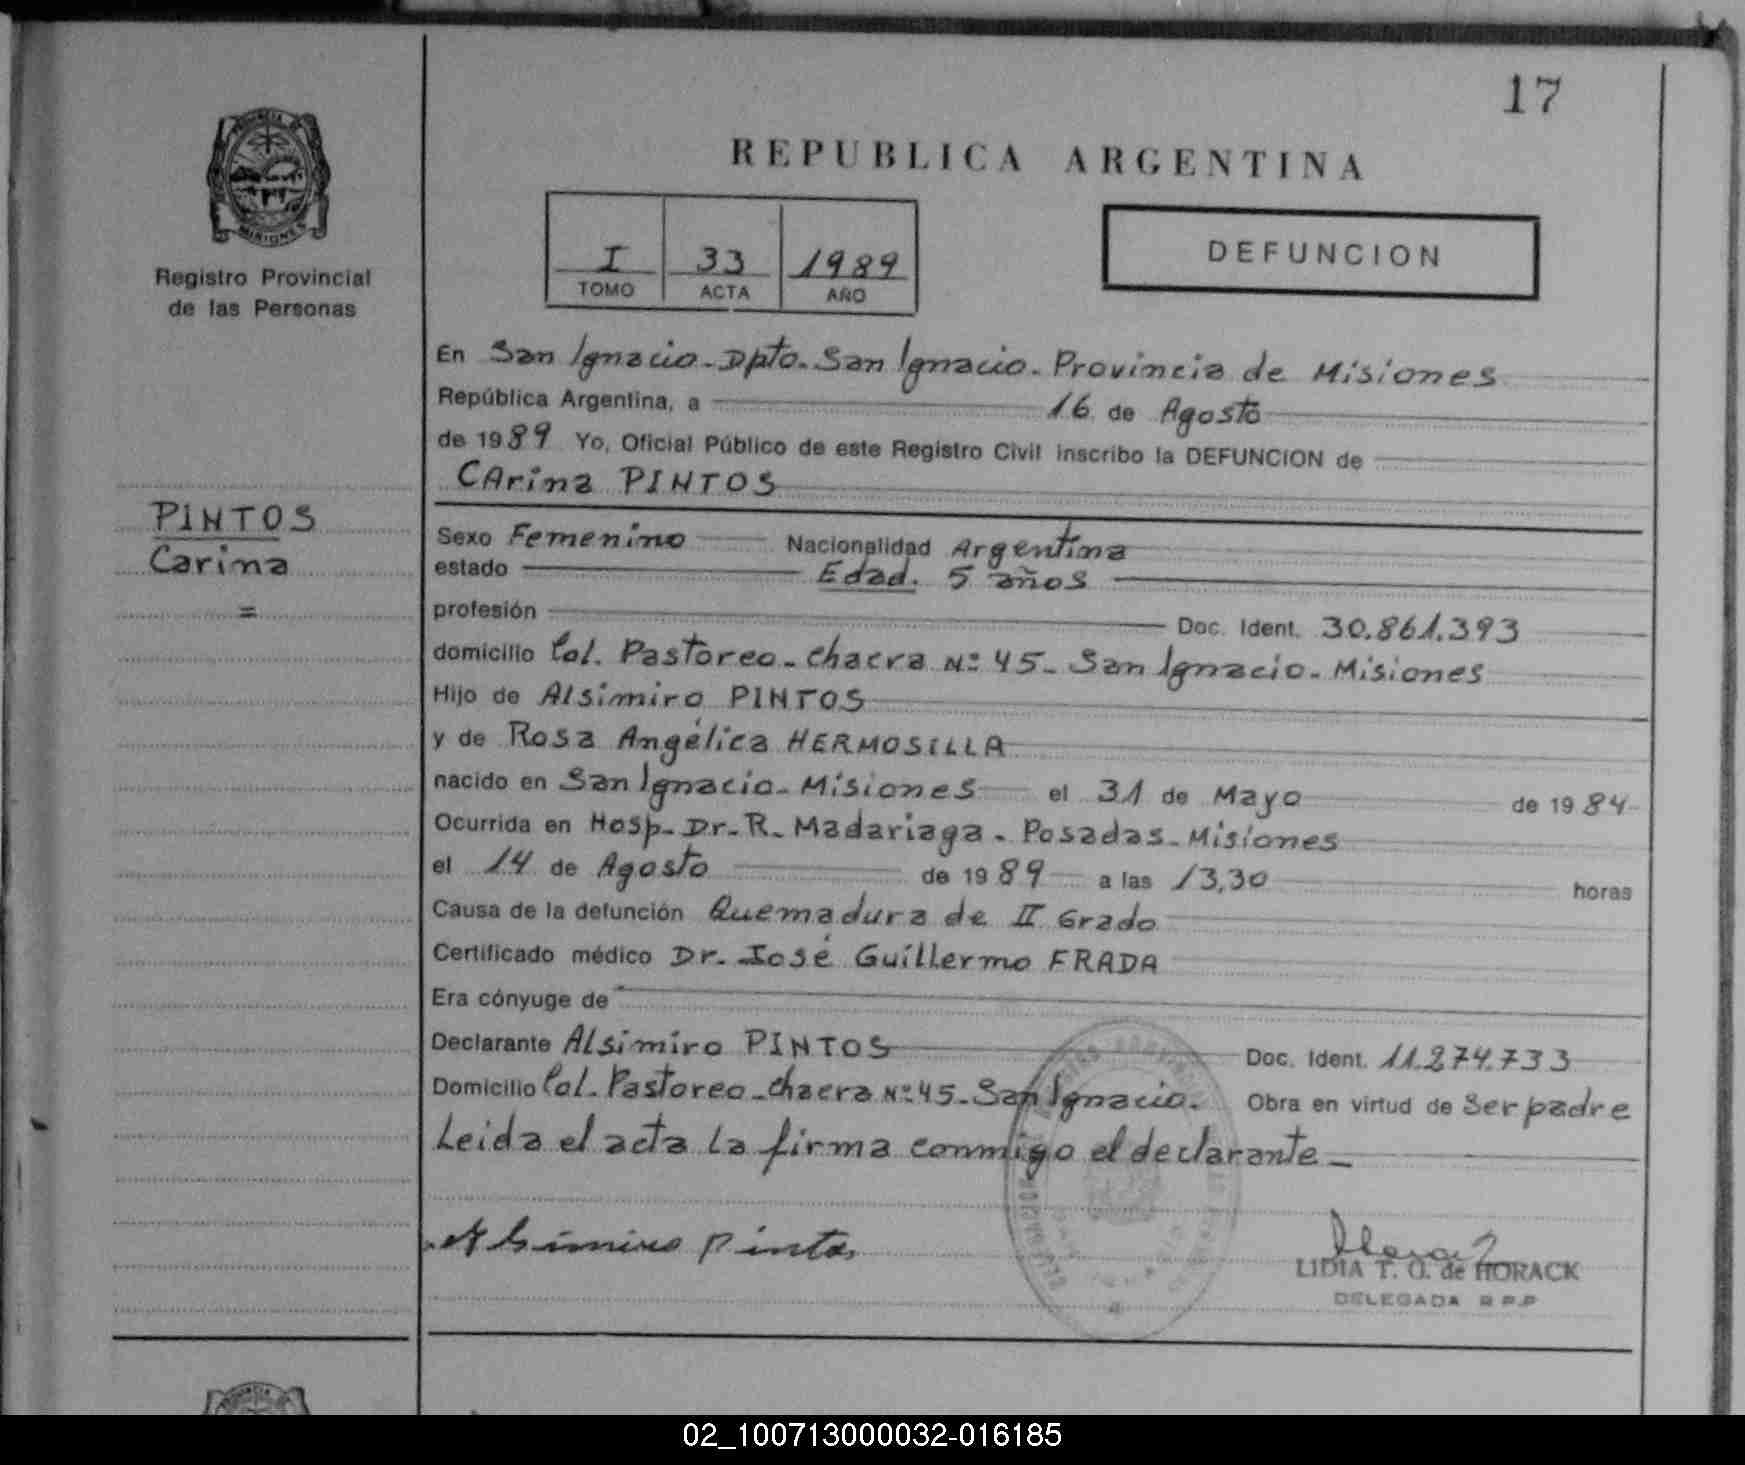 17
REPUBLICA ARGENTINA
PROVINCIA DE
MISIONES
Registro Provincial
de las Personas
I 33 1989
TOMO ACTA AÑO
DEFUNCION
En San Ignacio-Dpto. San Ignacio. Provincia de Misiones
República Argentina, a 16 de Agosto
de 1989 Yo, Oficial Público de este Registro Civil inscribo la DEFUNCION de
CArina PINTOS
PINTOS
Carina
=
Sexo Femenino Nacionalidad Argentina
estado Edad. 5 años
profesión Doc. Ident. 30.861.393
domicilio Col. Pastoreo-Chacra Nº 45-San Ignacio-Misiones
Hijo de Alsimiro PINTOS
y de Rosa Angélica HERMOSILLA
nacido en San Ignacio-Misiones el 31 de Mayo de 1984
Ocurrida en Hosp-Dr-R-Madariaga-Posadas-Misiones
el 14 de Agosto de 1989 a las 13,30 horas
Causa de la defunción Quemadura de II Grado
Certificado médico Dr-José Guillermo FRADA
Era cónyuge de
Declarante Alsimiro PINTOS Doc. Ident. 11.274.733
Domicilio Col-Pastoreo-Chacra Nº45-San Ignacio. Obra en virtud de Ser padre
Leida el acta la firma conmigo el declarante-
Alsimiro Pintos
LIDIA T. O. de HORACK
DELEGADA R.P.P
02_100713000032-016185